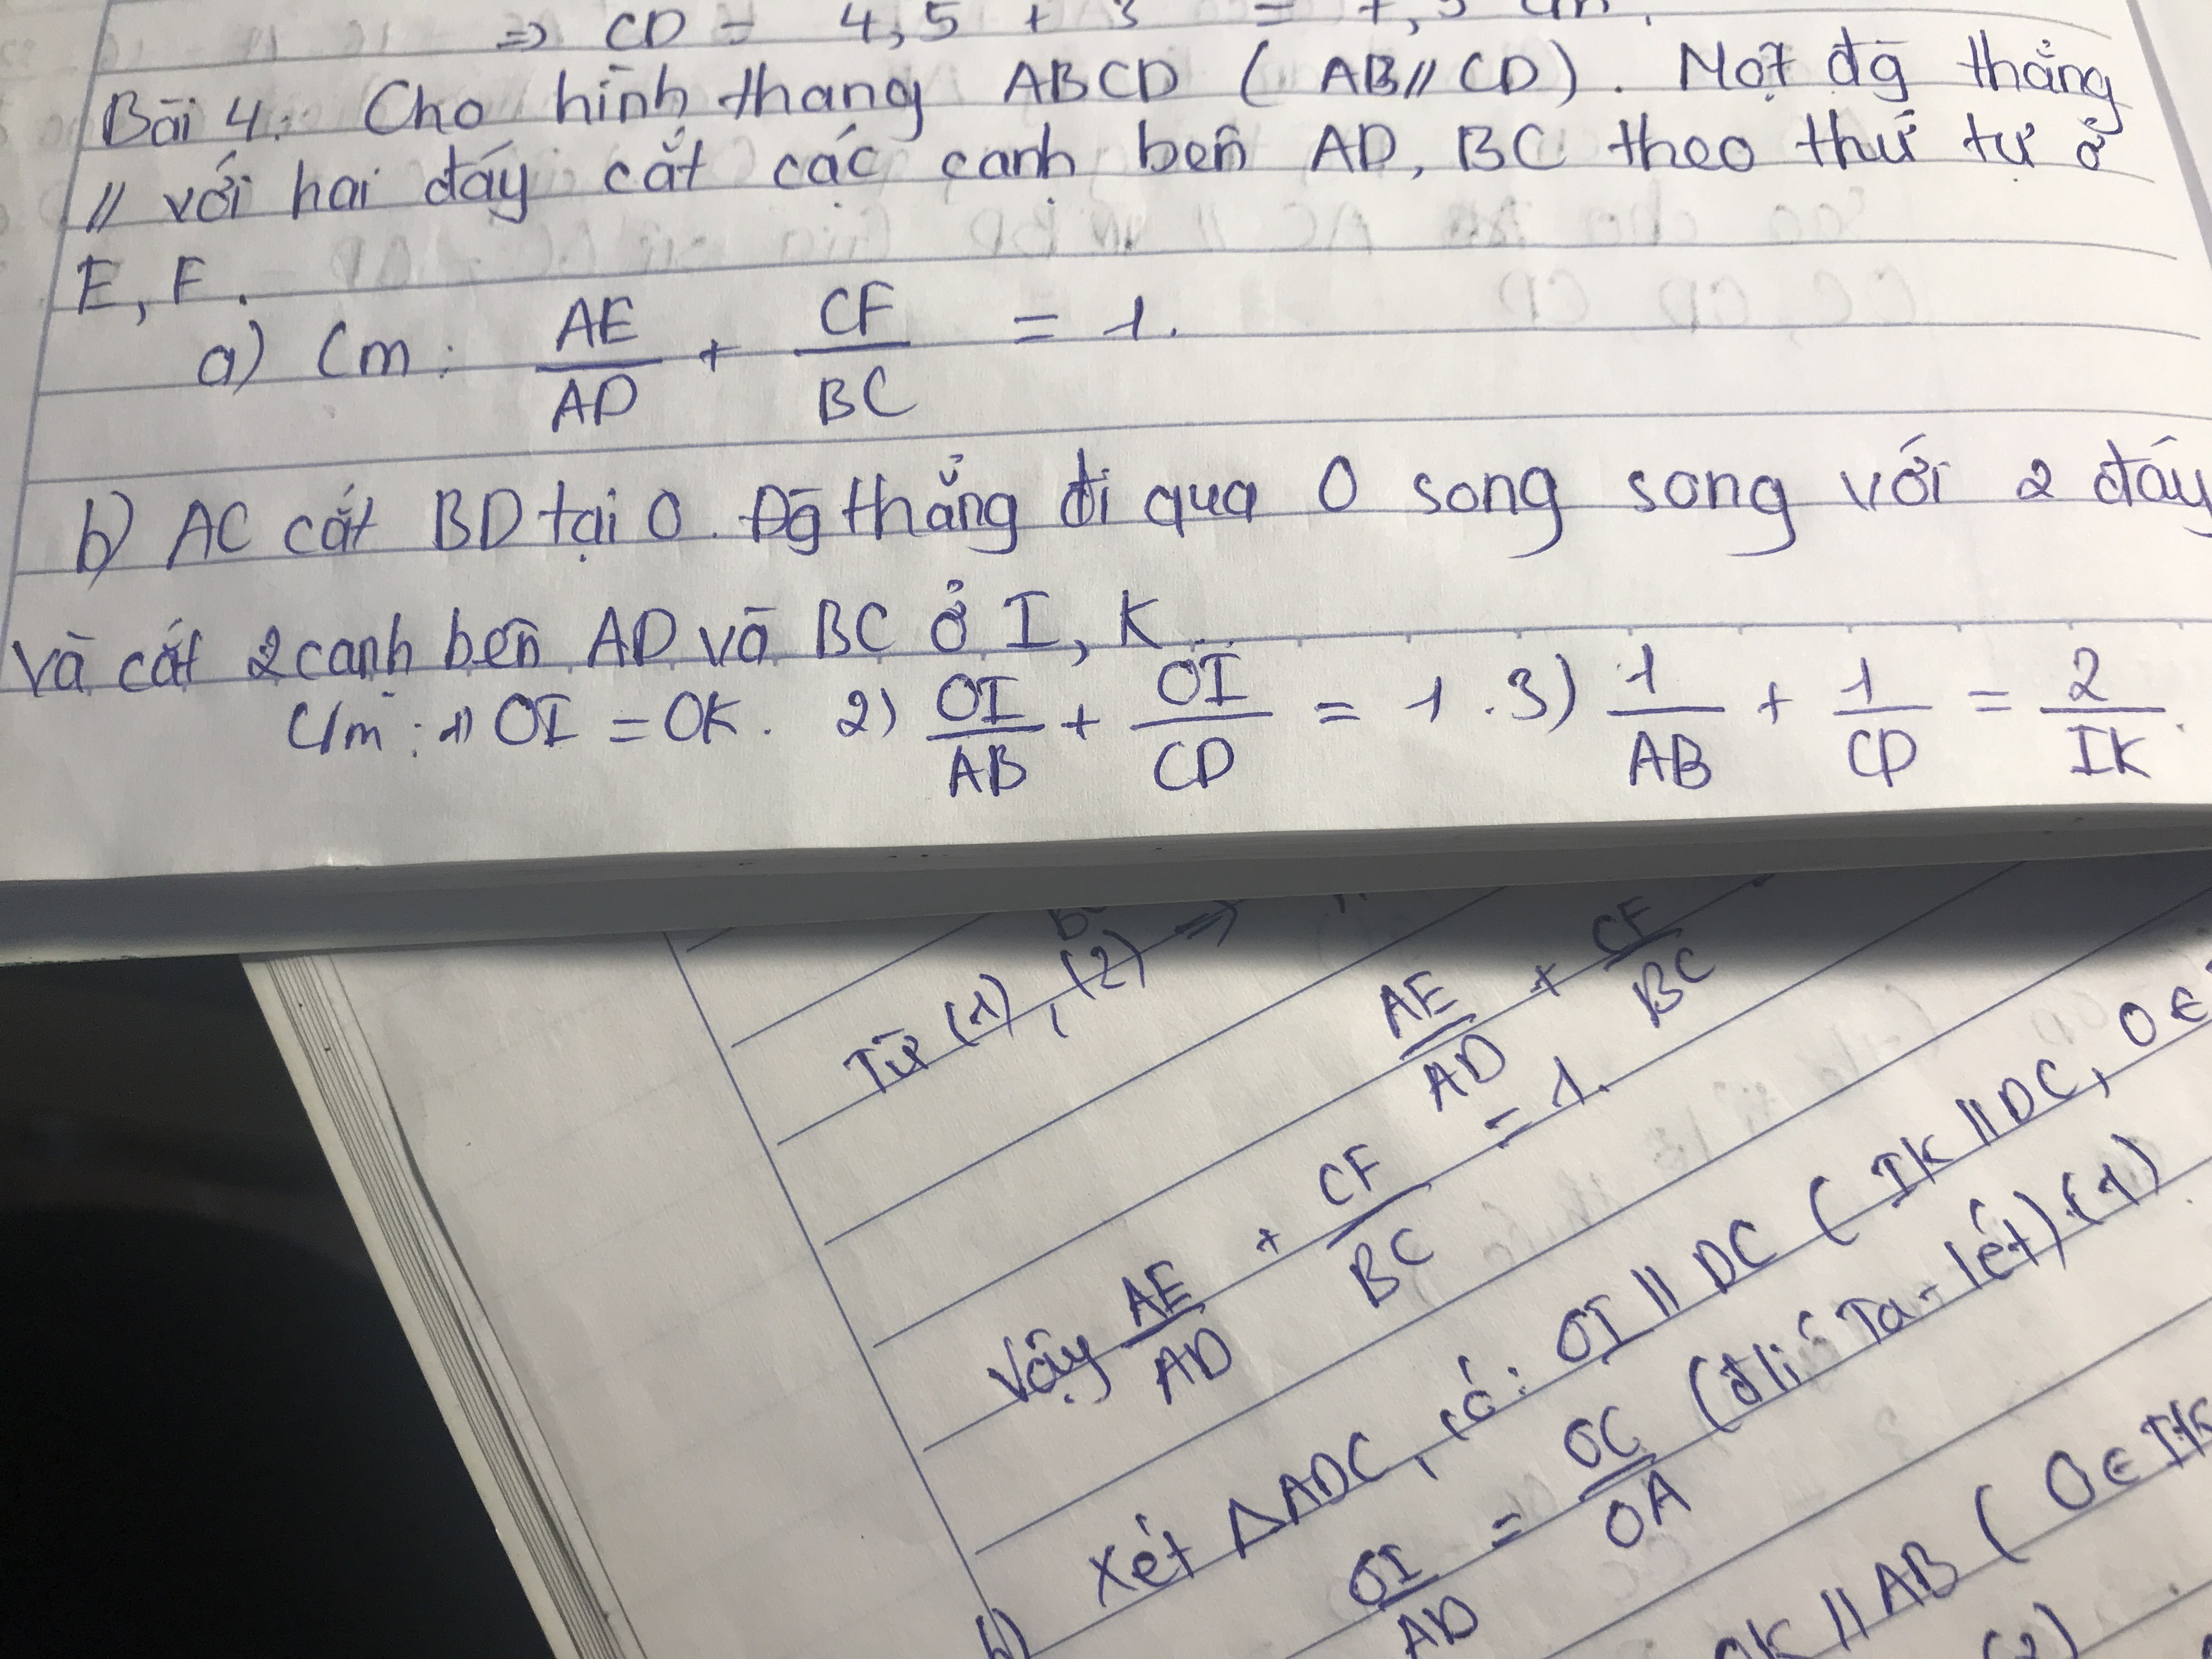 ⇒ CD = 4,5 + 3 = 7,5 cm.
Bài 4: Cho hình thang ABCD ( AB // CD ). Một đg thẳng
// với hai đáy cắt các cạnh bên AD, BC theo thứ tự ở
E, F.
a) Cm: AE/AD + CF/BC = 1.
b) AC cắt BD tại O. Đg thẳng đi qua O song song với 2 đáy
và cắt 2 cạnh bên AD và BC ở I, K.
C/m: 1) OI = OK. 2) OI/AB + OI/CD = 1. 3) 1/AB + 1/CD = 2/IK.
Từ (1), (2) ⇒
AE/AD + CF/BC = 1.
Vậy AE/AD + CF/BC
b) Xét ΔADC, có: OI // DC ( IK // DC, O ∈
OI/AD = OC/OA (đlí Ta-lét) (1)
OK // AB ( O ∈ IK
(2)